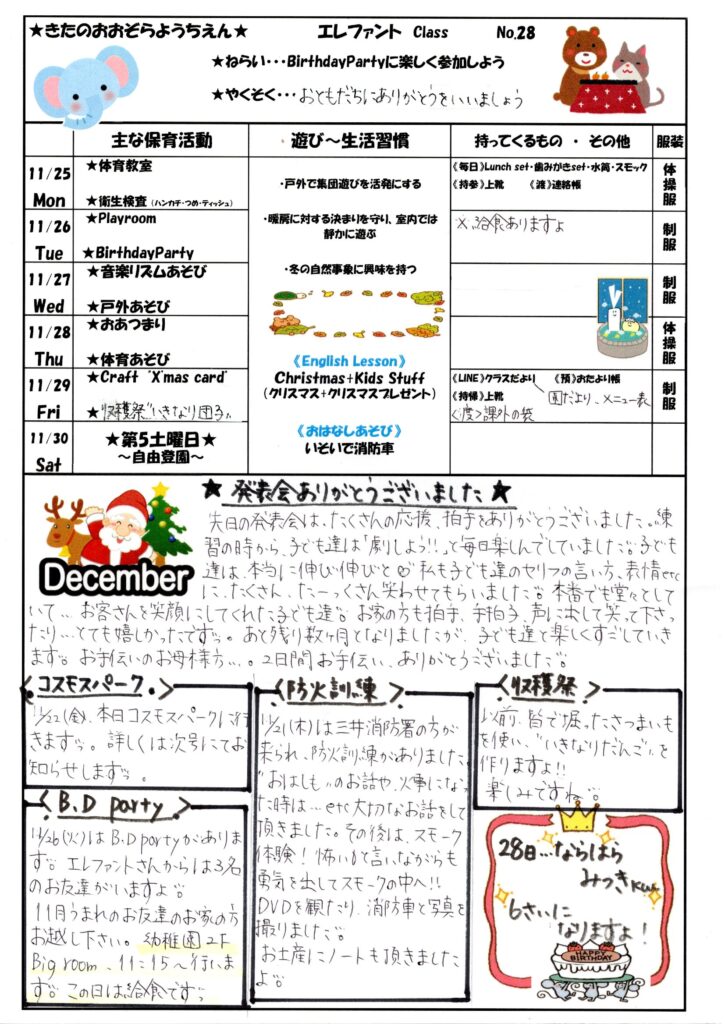 ★きたのおおぞらようちえん★ エレファント Class No.28
★ねらい・・・BirthdayPartyに楽しく参加しよう
★やくそく・・・おともだちにありがとうをいいましょう
主な保育活動 遊び～生活習慣 持ってくるもの ・ その他 服装
11/25 Mon
★体育教室
★衛生検査（ハンカチ・つめ・ティッシュ）
《毎日》Lunch set・歯みがきset・水筒・スモック
《持参》上靴 《渡》連絡帳
体操服
11/26 Tue
★Playroom
★BirthdayParty
※給食ありますよ
制服
11/27 Wed
★音楽リズムあそび
★戸外あそび
制服
11/28 Thu
★おあつまり
★体育あそび
体操服
11/29 Fri
★Craft "X'mas card"
★収穫祭"いきなり団子"
《LINE》クラスだより 《預》おたより帳
園だより、メニュー表
《持帰》上靴
《渡》課外の袋
制服
11/30 Sat
★第5土曜日★
～自由登園～
・戸外で集団遊びを活発にする
・暖房に対する決まりを守り、室内では
静かに遊ぶ
・冬の自然事象に興味を持つ
《English Lesson》
Christmas+Kids Stuff
（クリスマス+クリスマスプレゼント）
《おはなしあそび》
いそいで消防車
December
★ 発表会ありがとうございました ★
先日の発表会は、たくさんの応援、拍手をありがとうございました。練
習の時から、子ども達は「劇しよう!!」と毎日楽しんでしていました。子ども
達は、本当に伸び伸びと♡私も子ども達のセリフの言い方、表情etc
に、たくさん、たーっくさん笑わせてもらいました。本番でも堂々として
いて… お客さんを笑顔にしてくれた子ども達。お家の方も拍手、手拍子、声に出して笑って下さ
ったり…とても嬉しかったですっ。あと残り数ヶ月となりましたが、子ども達と楽しくすごしていき
ます。お手伝いのお母様方…。2日間お手伝い、ありがとうございました。
〈コスモスパーク〉
11/22(金)、本日コスモスパークに行
きますっ。詳しくは次号にてお
知らせしますっ。
〈B.D party〉
11/26(火)はB.D partyがありま
す。エレファントさんからは3名
のお友達がいますよ。
11月うまれのお友達のお家の方
お越し下さい。幼稚園2F
Big room、11:15〜行いま
す。この日は給食ですっ
〈防火訓練〉
11/21(木)は三井消防署の方が
来られ、防火訓練がありました。
"おはしも"のお話や、火事になっ
た時は…etc大切なお話をして
頂きました。その後は、スモーク
体験！怖いかなと言いながらも
勇気を出してスモークの中へ!!
DVDを観たり、消防車と写真を
撮りました。
お土産にノートも頂きました
よ。
〈収穫祭〉
以前、皆で掘ったさつまいも
を使い、"いきなりだんご"を
作りますよ!!
楽しみですね。
28日…ならはら
みつきくん
6さいに
なりますよ！
HAPPY BIRTHDAY